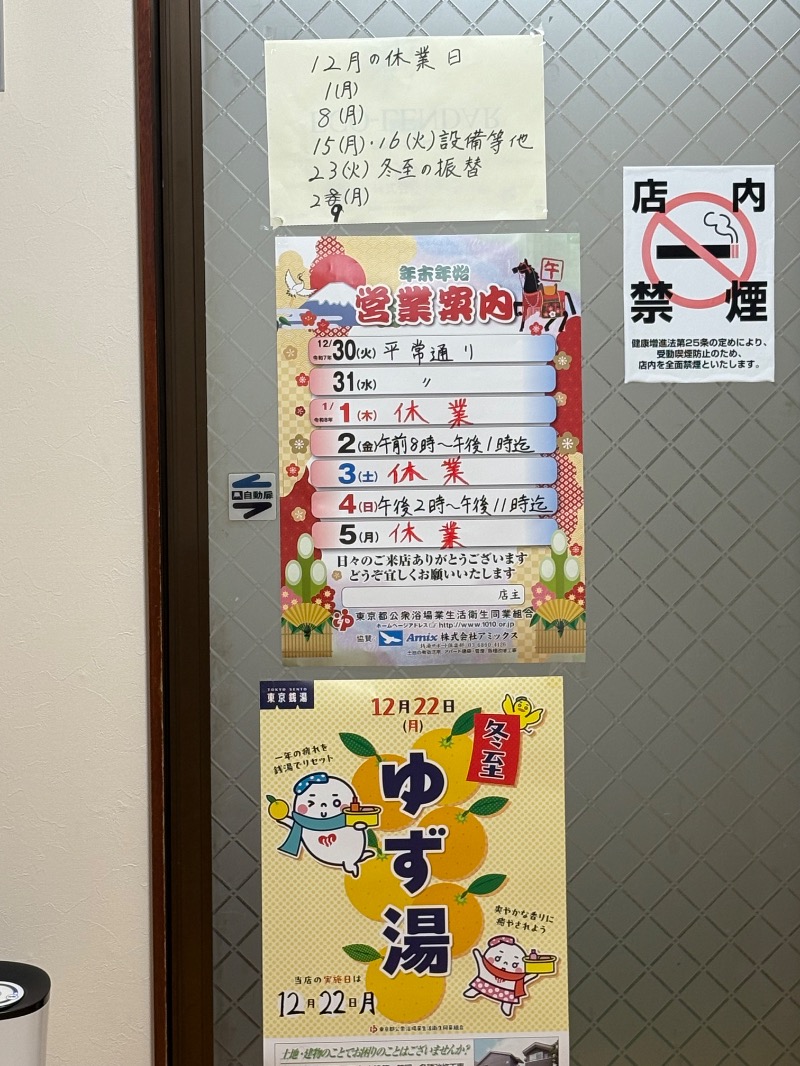 12月の休業日
1(月)
8(月)
15(月)・16(火)設備等他
23(火)冬至の振替
29(月)
店内
禁煙
健康増進法第25条の定めにより、
受動喫煙防止のため、
店内を全面禁煙といたします。
午
年末年始
営業案内
12/30(火)平常通り
令和7年
31(水) 〃
1/1(木)休業
令和8年
2(金)午前8時~午後1時迄
3(土)休業
4(日)午後2時~午後11時迄
5(月)休業
日々のご来店ありがとうございます
どうぞ宜しくお願いいたします
店主
東京都公衆浴場業生活衛生同業組合
ホームページアドレス http://www.1010.or.jp
協賛 Amix 株式会社アミックス
自動扉
TOKYO SENTO
東京銭湯
12月22日
(月)
冬至
一年の疲れを
銭湯でリセット
ゆず湯
爽やかな香りに
癒やされよう
当店の実施日は
12月22日月
東京都公衆浴場業生活衛生同業組合
土地・建物のことでお困りのことはございませんか?